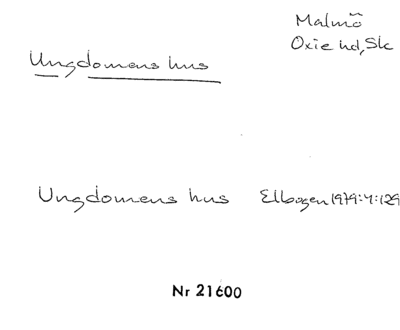 Malmö
Oxie hd, Sk
Ungdomens hus
Ungdomens hus Elbogen 1979:4:129
Nr 21600